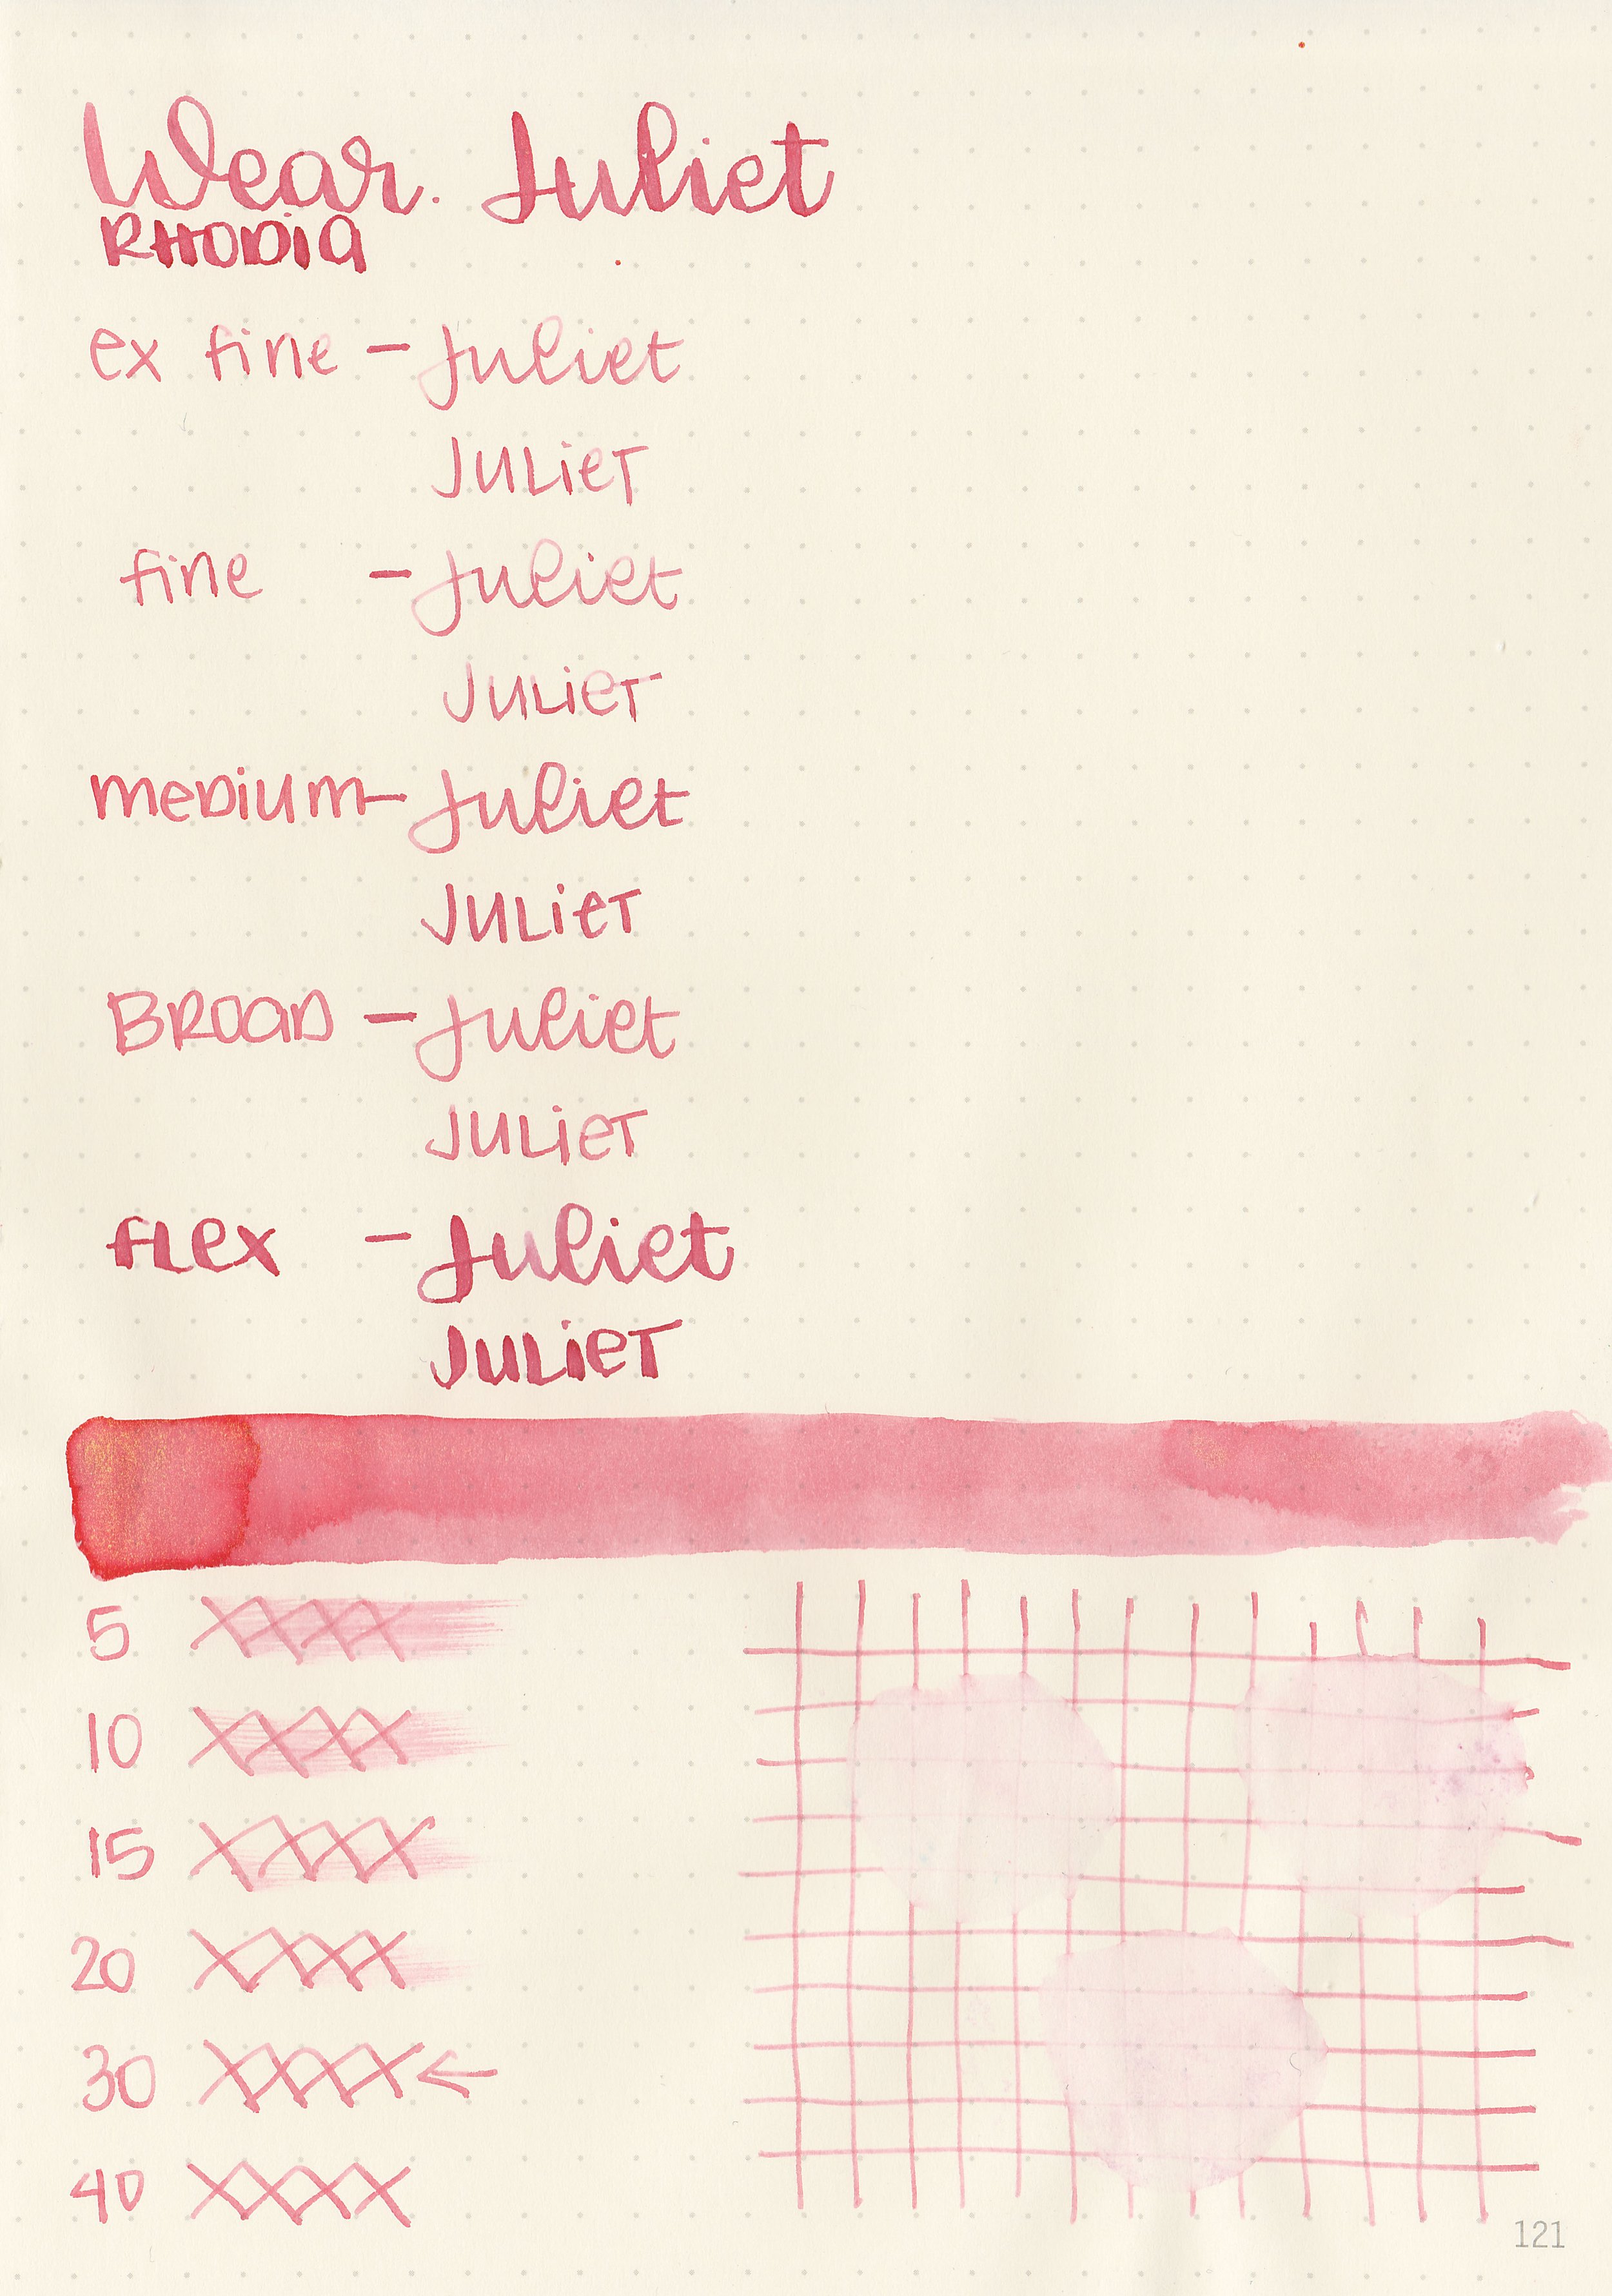 Wear. Juliet
RHODIA
ex fine - Juliet
JULIET
fine - Juliet
JULIET
MEDIUM - Juliet
JULIET
BROAD - Juliet
JULIET
FLEX - Juliet
JULIET
5 XXXX
10 XXXX
15 XXXX
20 XXXX
30 XXXX ←
40 XXXX
121